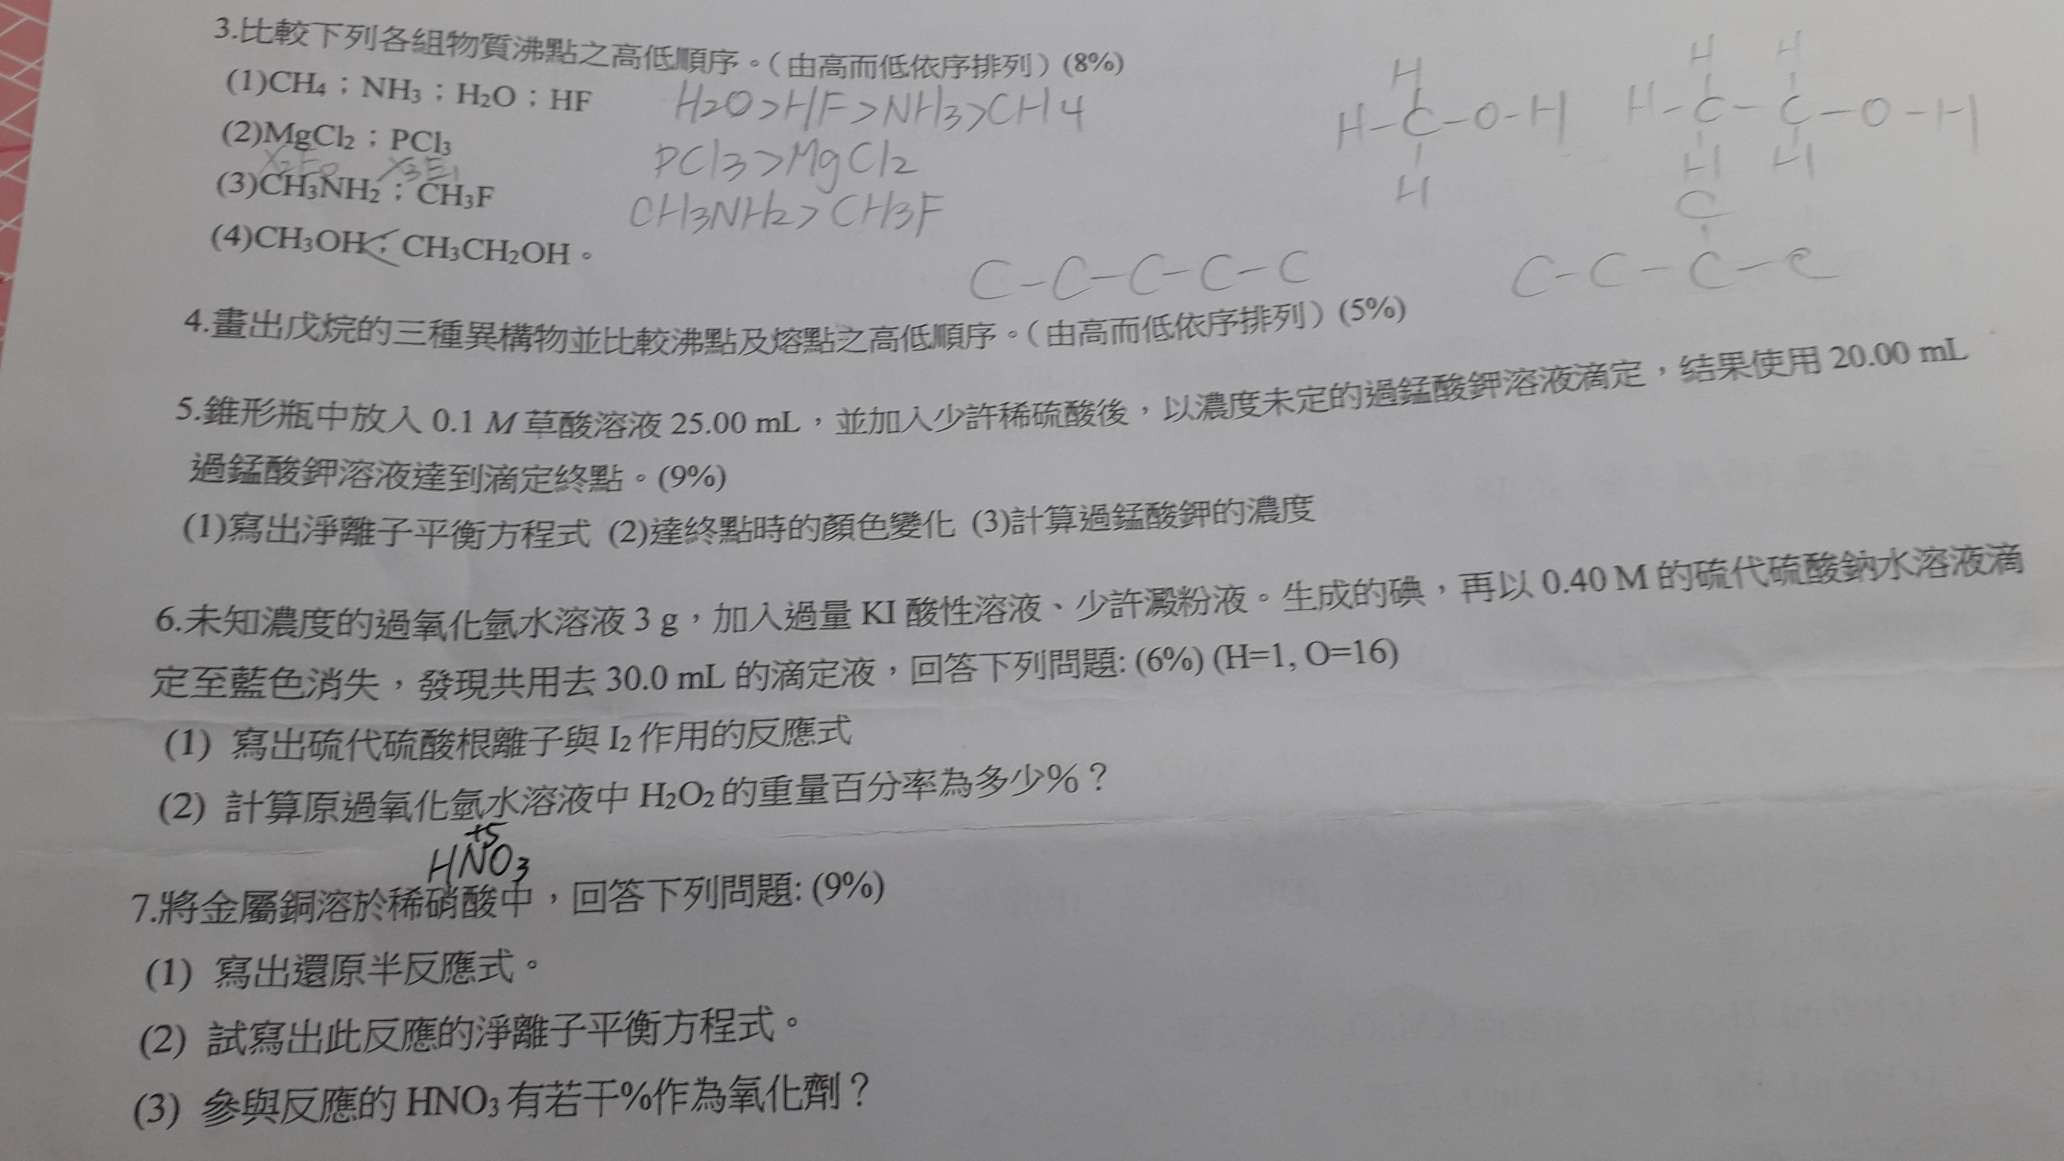 3.比較下列各組物質沸點之高低順序。(由高而低依序排列) (8%)
(1)CH₄；NH₃；H₂O；HF H2O>HF>NH3>CH4
(2)MgCl₂；PCl₃ PCl3>MgCl2
X2E0 X3E1
(3)CH₃NH₂；CH₃F CH3NH2>CH3F
(4)CH₃OH<；CH₃CH₂OH。
H
H-C-O-H
H
H H
H-C-C-O-H
H H
C-C-C-C-C
C
C-C-C-C
4.畫出戊烷的三種異構物並比較沸點及熔點之高低順序。(由高而低依序排列) (5%)
5.錐形瓶中放入 0.1 M 草酸溶液 25.00 mL，並加入少許稀硫酸後，以濃度未定的過錳酸鉀溶液滴定，結果使用 20.00 mL
過錳酸鉀溶液達到滴定終點。(9%)
(1)寫出淨離子平衡方程式 (2)達終點時的顏色變化 (3)計算過錳酸鉀的濃度
6.未知濃度的過氧化氫水溶液 3 g，加入過量 KI 酸性溶液、少許澱粉液。生成的碘，再以 0.40 M 的硫代硫酸鈉水溶液滴
定至藍色消失，發現共用去 30.0 mL 的滴定液，回答下列問題: (6%) (H=1, O=16)
(1) 寫出硫代硫酸根離子與 I₂ 作用的反應式
(2) 計算原過氧化氫水溶液中 H₂O₂ 的重量百分率為多少%？
+5
HNO3
7.將金屬銅溶於稀硝酸中，回答下列問題: (9%)
(1) 寫出還原半反應式。
(2) 試寫出此反應的淨離子平衡方程式。
(3) 參與反應的 HNO₃ 有若干%作為氧化劑？